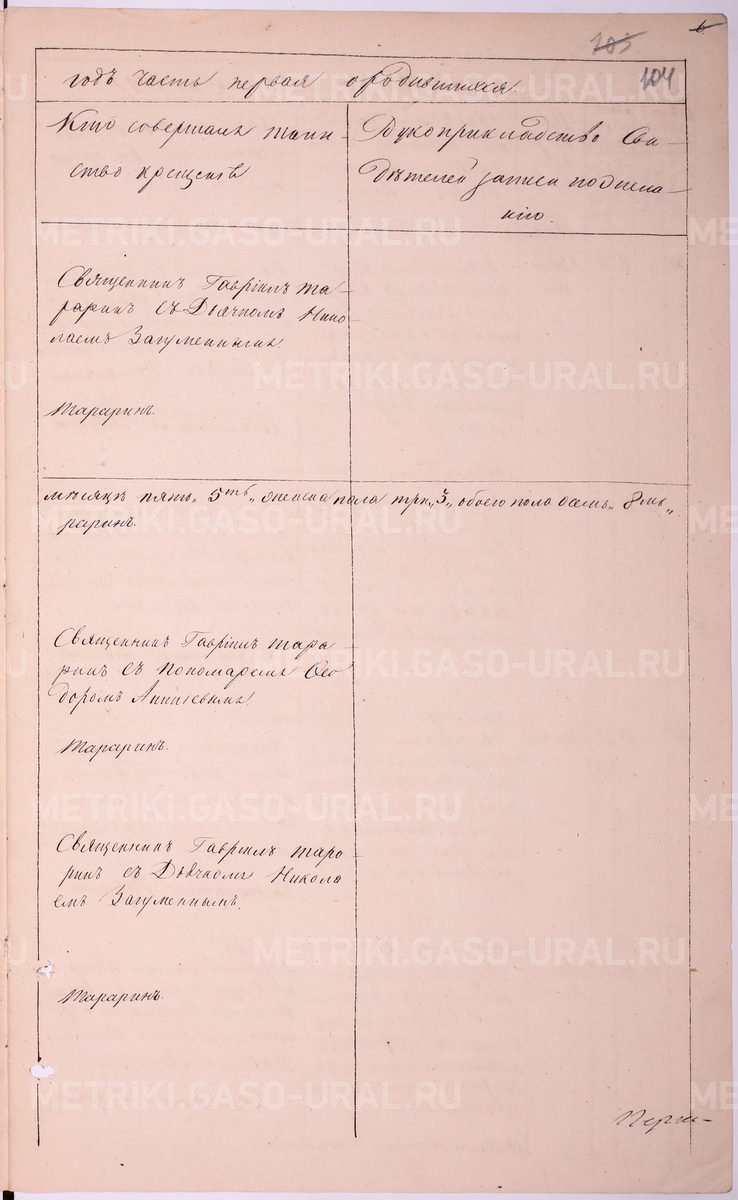 6
105
104
годъ часть первая о родившихся.
Кто совершалъ таин-
ство крещенія
Рукоприкладство сви-
дѣтелей записи по жела-
нію.
Священникъ Гавріилъ Та-
раринъ съ Дьячкомъ Нико-
лаемъ Загуменныхъ
Тараринъ.
мѣсяцѣ пять „5ть„ женска пола три „3„ обоего пола восемь „8мь„.
раринъ.
Священникъ Гавріилъ Тара-
ринъ съ Пономаремъ Ѳео
доромъ
Тараринъ.
Священникъ Гавріилъ Тара-
ринъ съ Дьячкомъ Никола
емъ Загуменнымъ.
Тараринъ.
METRIKI.GASO-URAL.RU